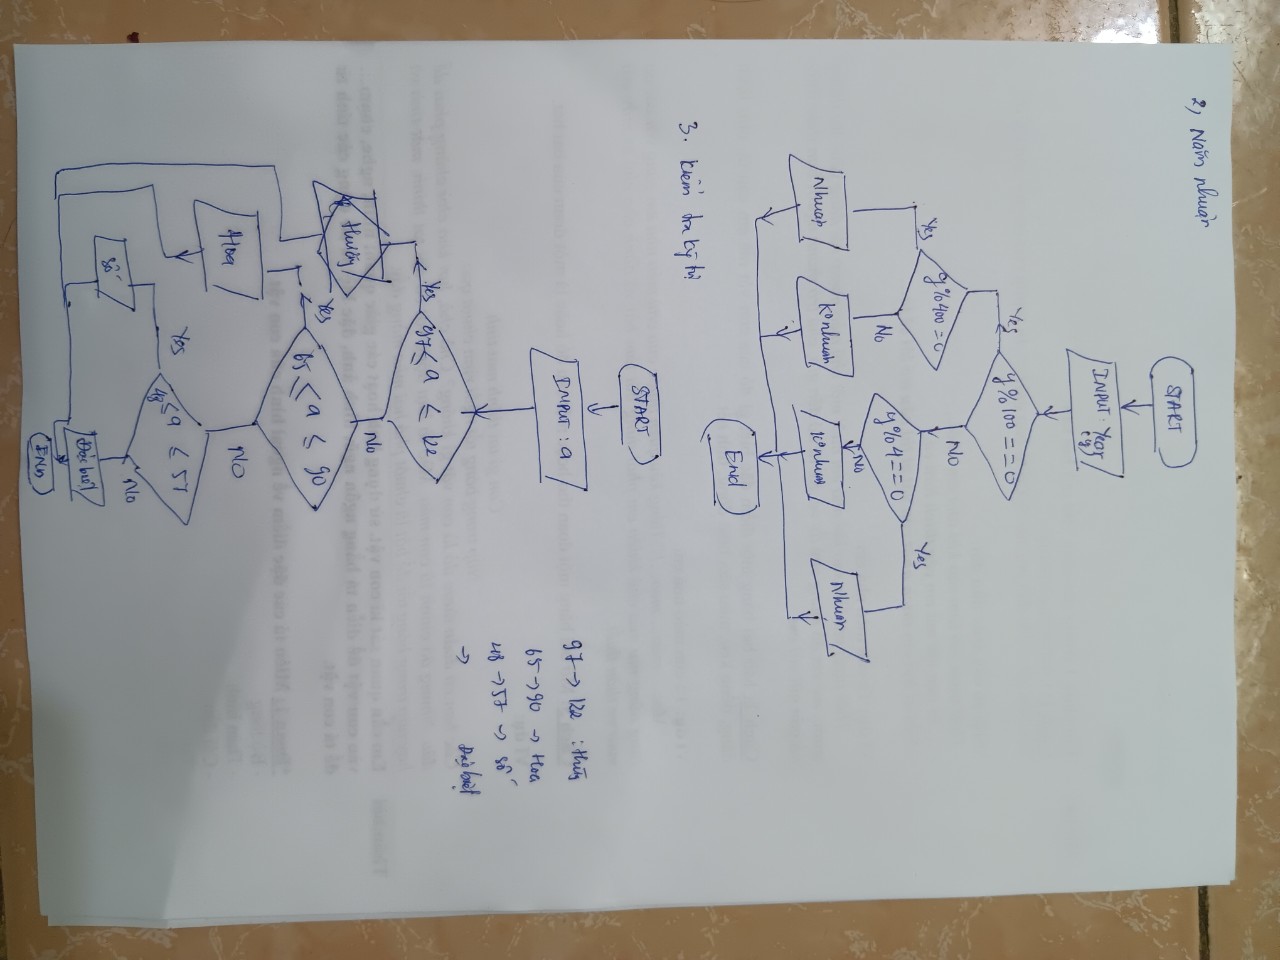 2, Năm nhuận
START
INPUT: Year
(y)
y%100==0
Yes
No
y%400=0
Yes
No
y%4==0
Yes
No
Nhuận
Konhuận
Konhuận
Nhuận
End
3. Kiểm tra ký tự
START
INPUT: a
97 ≤ a ≤ 122
Yes
No
thường
65 ≤ a ≤ 90
Yes
NO
Hoa
48 ≤ a ≤ 57
Yes
No
Số
Đặc biệt
END
97 → 122 : thường
65 → 90 → Hoa
48 → 57 → số
→ Đặc biệt